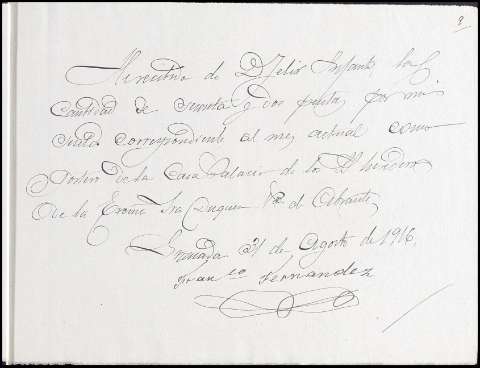 8
He recibido de D Felix Infante, la
Cantidad de cincuenta y dos pesetas por mi
sueldo correspondiente al mes actual como
Portero de la Casa Palacio de los Herederos
de la Excma Sra Duquesa Vda de Abrantes
Granada 31 de Agosto de 1916,
Franco Fernandez